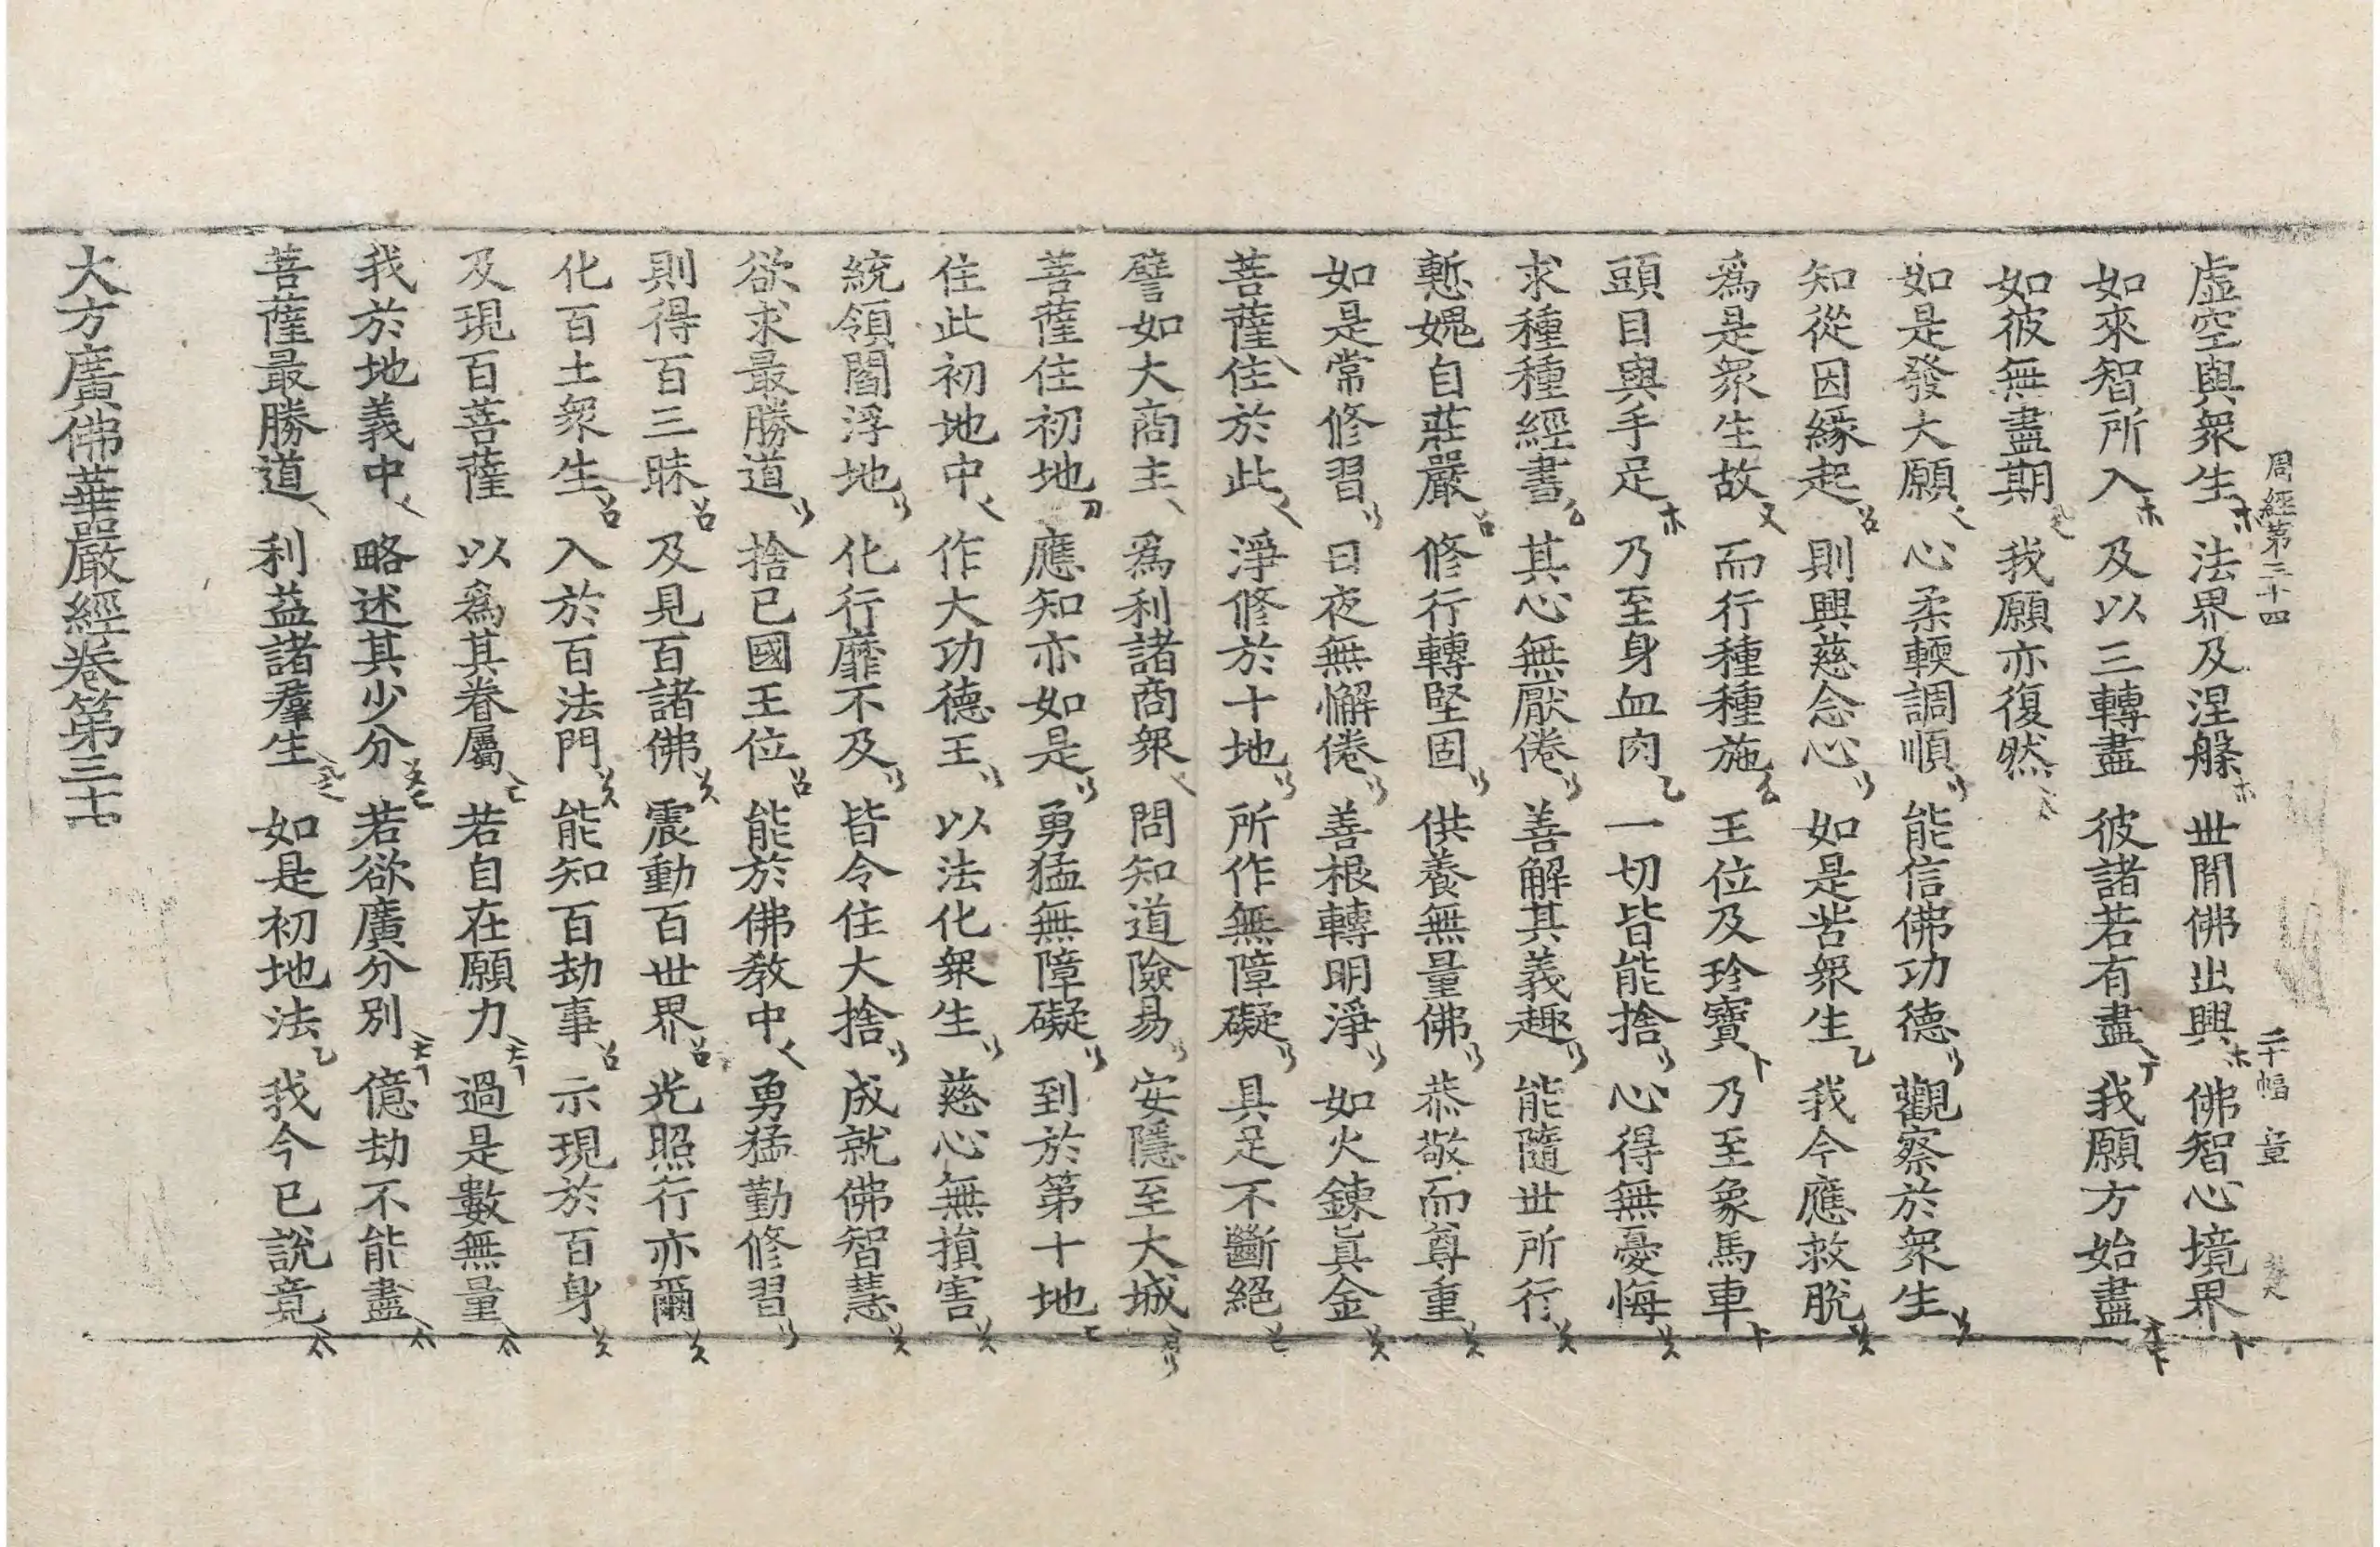 虛空與衆生 法界及涅槃 世間佛出興 佛智心境界
周經第三十四 二十幅
如來智所入 及以三轉盡 彼諸若有盡 我願方始盡
如彼無盡期 我願亦復然
如是發大願 心柔輭調順 能信佛功德 觀察於衆生
知從因緣起 則興慈念心 如是苦衆生 我今應救脫
爲是衆生故 而行種種施 王位及珍寶 乃至象馬車
頭目與手足 乃至身血肉 一切皆能捨 心得無憂悔
求種種經書 其心無厭倦 善解其義趣 能隨世所行
慙愧自莊嚴 修行轉堅固 供養無量佛 恭敬而尊重
如是常修習 日夜無懈倦 善根轉明淨 如火鍊眞金
菩薩住於此 淨修於十地 所作無障礙 具足不斷絕
譬如大商主 爲利諸商衆 問知道險易 安隱至大城
菩薩住初地 應知亦如是 勇猛無障礙 到於第十地
住此初地中 作大功德王 以法化衆生 慈心無損害
統領閻浮地 化行靡不及 皆令住大捨 成就佛智慧
欲求最勝道 捨已國王位 能於佛教中 勇猛勤修習
則得百三昧 及見百諸佛 震動百世界 光照行亦爾
化百土衆生 入於百法門 能知百劫事 示現於百身
及現百菩薩 以爲其眷屬 若自在願力 過是數無量
我於地義中 略述其少分 若欲廣分別 億劫不能盡
菩薩最勝道 利益諸羣生 如是初地法 我今已說竟
大方廣佛華嚴經卷第三十